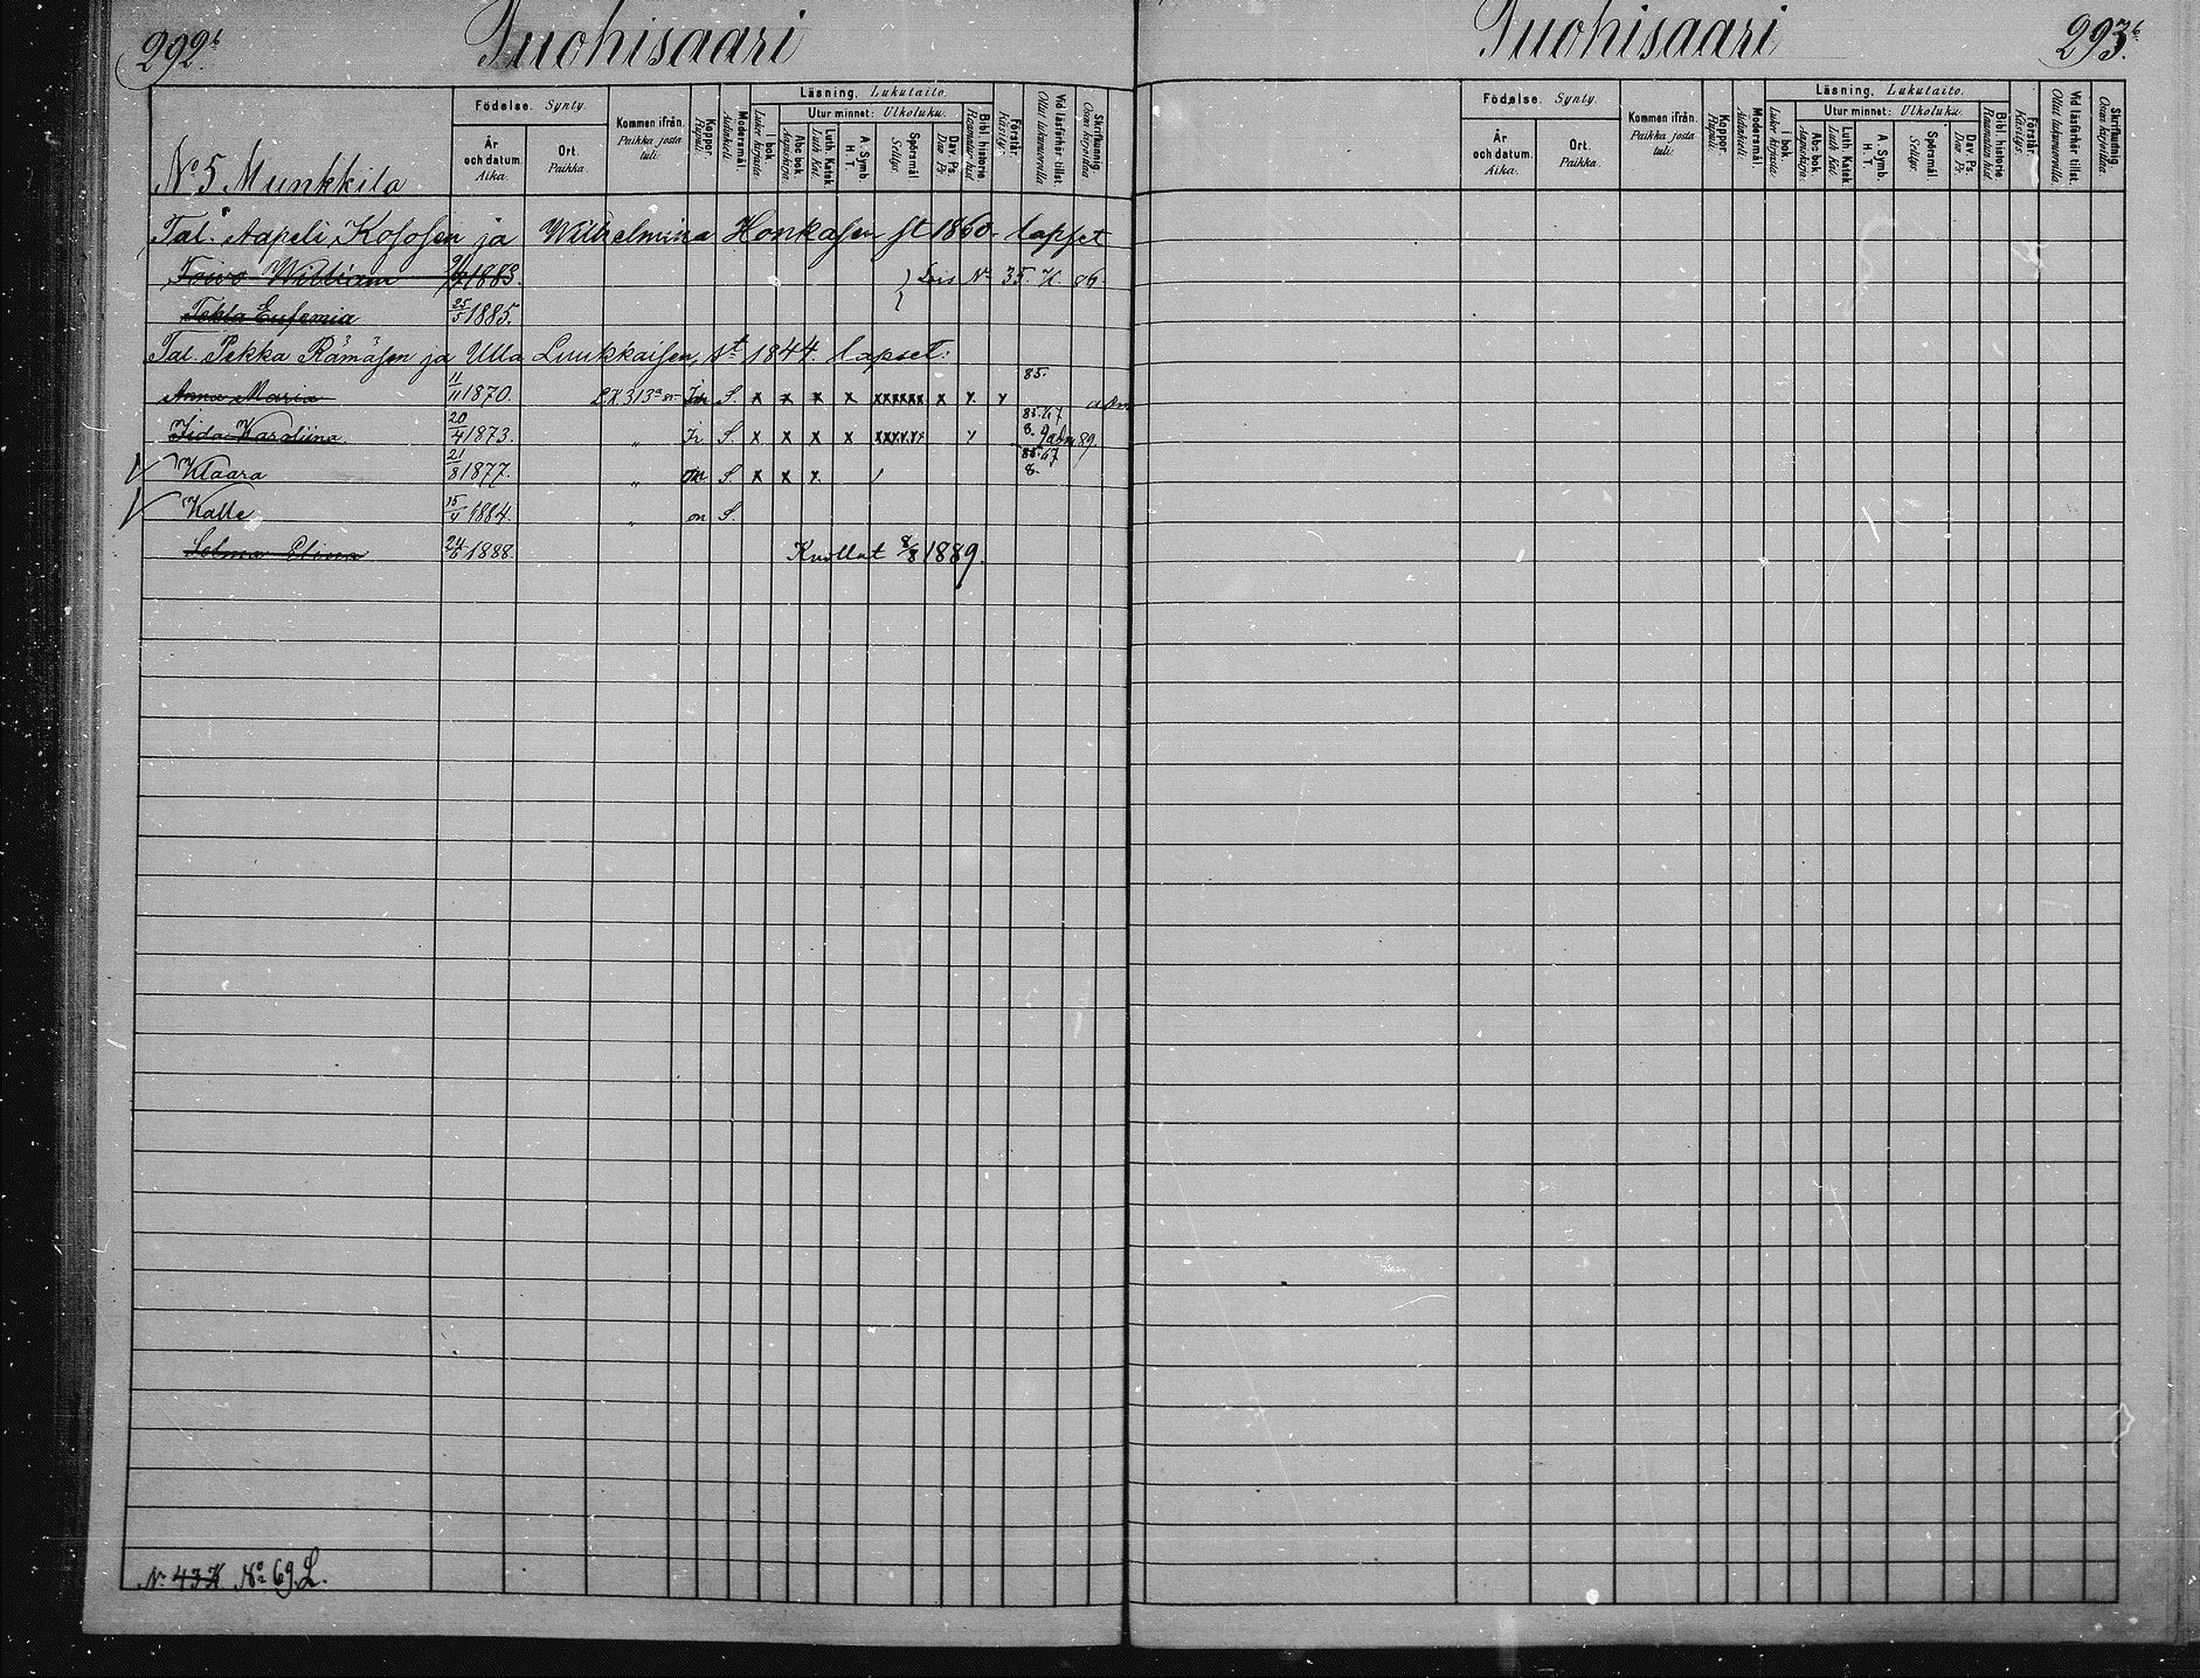 292b. Tuohisaari
No 5 Munkkila
Födelse. Synty.
År och datum. Aika.
Ort. Paikka.
Kommen ifrån. Paikka josta tuli.
Koppor. Rupuli.
Modersmål. Äidinkieli.
Läsning. Lukutaito.
I bok. Lukee kirjasta.
Utur minnet: Ulkoluku.
Abc bok. Aapiskirja.
Luth. Katek. Luth. Kat.
A. Symb. H. T.
Spörsmål. Selitys.
Dav. Ps. Dav. Ps.
Bibl. historie. Raamatun hist.
Förstår. Käsitys.
Vid läsförhör tillst. Ollut lukuvuorilla.
Skrifkunnig. Osaa kirjoittaa.
Tal. Aapeli Kososen ja Wilhelmina Honkasen st 1860 lapset
Toivo William 1883. Lois No 35. K. 86
Tekla Eufemia 25/5 1885.
Tal. Pekka Rämäsen ja Ulla Luukkaisen, st 1844. lapset:
Anna Maria 11/11 1870. LK 313a S. x x x x xxxxxx x x. x 85. adm
Iida Karoliina 20/4 1873. " S. x x x x xxxxxx x 85. 87 8. 9 adm 89.
Klaara 21/8 1877. " on S. x x x. 85. 87 8.
Kalle 15/4 1884. " on S.
Selma Elina 24/6 1888. Kuollut 8/8 1889.
N. 43 K No 69 L.
Tuohisaari 293b.
Födelse. Synty.
År och datum. Aika.
Ort. Paikka.
Kommen ifrån. Paikka josta tuli.
Koppor. Rupuli.
Modersmål. Äidinkieli.
Läsning. Lukutaito.
I bok. Lukee kirjasta.
Utur minnet: Ulkoluku.
Abc bok. Aapiskirja.
Luth. Katek. Luth. Kat.
A. Symb. H. T.
Spörsmål. Selitys.
Dav. Ps. Dav. Ps.
Bibl. historie. Raamatun hist.
Förstår. Käsitys.
Vid läsförhör tillst. Ollut lukuvuorilla.
Skrifkunnig. Osaa kirjoittaa.